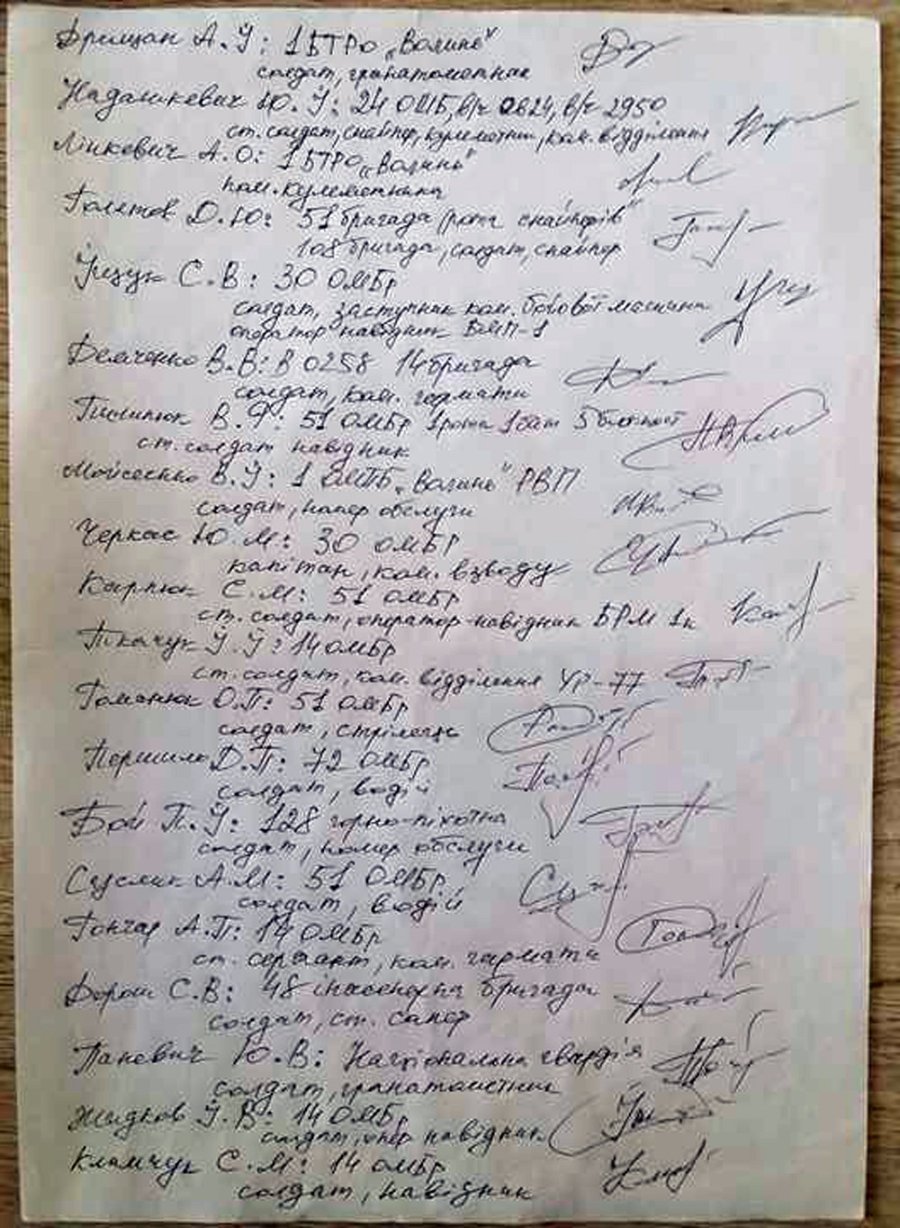 Дрищан А.І: 1 БТРо „Волинь"
солдат, гранатометник
Надашкевич Ю.І: 24 ОШБ, в/ч 0624, в/ч 2950
ст. солдат, снайпер, кулеметник, ком. відділення
Лінкевич А.О: 1 БТРО „Волинь"
пом. кулеметника
Д.Ю: 51 бригада (рота снайперів"
108 бригада, солдат, снайпер
С.В: 30 ОМБр
солдат, заступник ком. бойової машини
оператор навідник БМП-1
Демченко В.В: В 0258 14 бригада
солдат, ком. гармати
В.Ф: 51 ОМБр 1 рота 1 бат 5 блокпост
ст. солдат навідник
Мойсеєнко В.І: 1 „Волинь" РВП
солдат, номер обслуги
Черкас Ю.М: 30 ОМБр
капітан, ком. взводу
Карпюк С.М: 51 ОМБр
ст. солдат, оператор-навідник БРМ 1к
Ткачук І.І: 14 ОМБр
ст. солдат, ком. відділення УР-77
Романюк О.П: 51 ОМБр
солдат, стрілець
Д.П: 72 ОМБр
солдат, водій
Бой П.І: 128 горно-піхотна
солдат, номер обслуги
Суслик А.М: 51 ОМБр
солдат, водій
Гончар А.П: 14 ОМБр
ст. сержант, ком. гармати
Дорош С.В: 48 бригада
солдат, ст. сапер
Паневич Ю.В: Національна гвардія
солдат, гранатометник
Жидков І.В: 14 ОМБр
солдат, навідник
Климчук С.М: 14 ОМБр
солдат, навідник